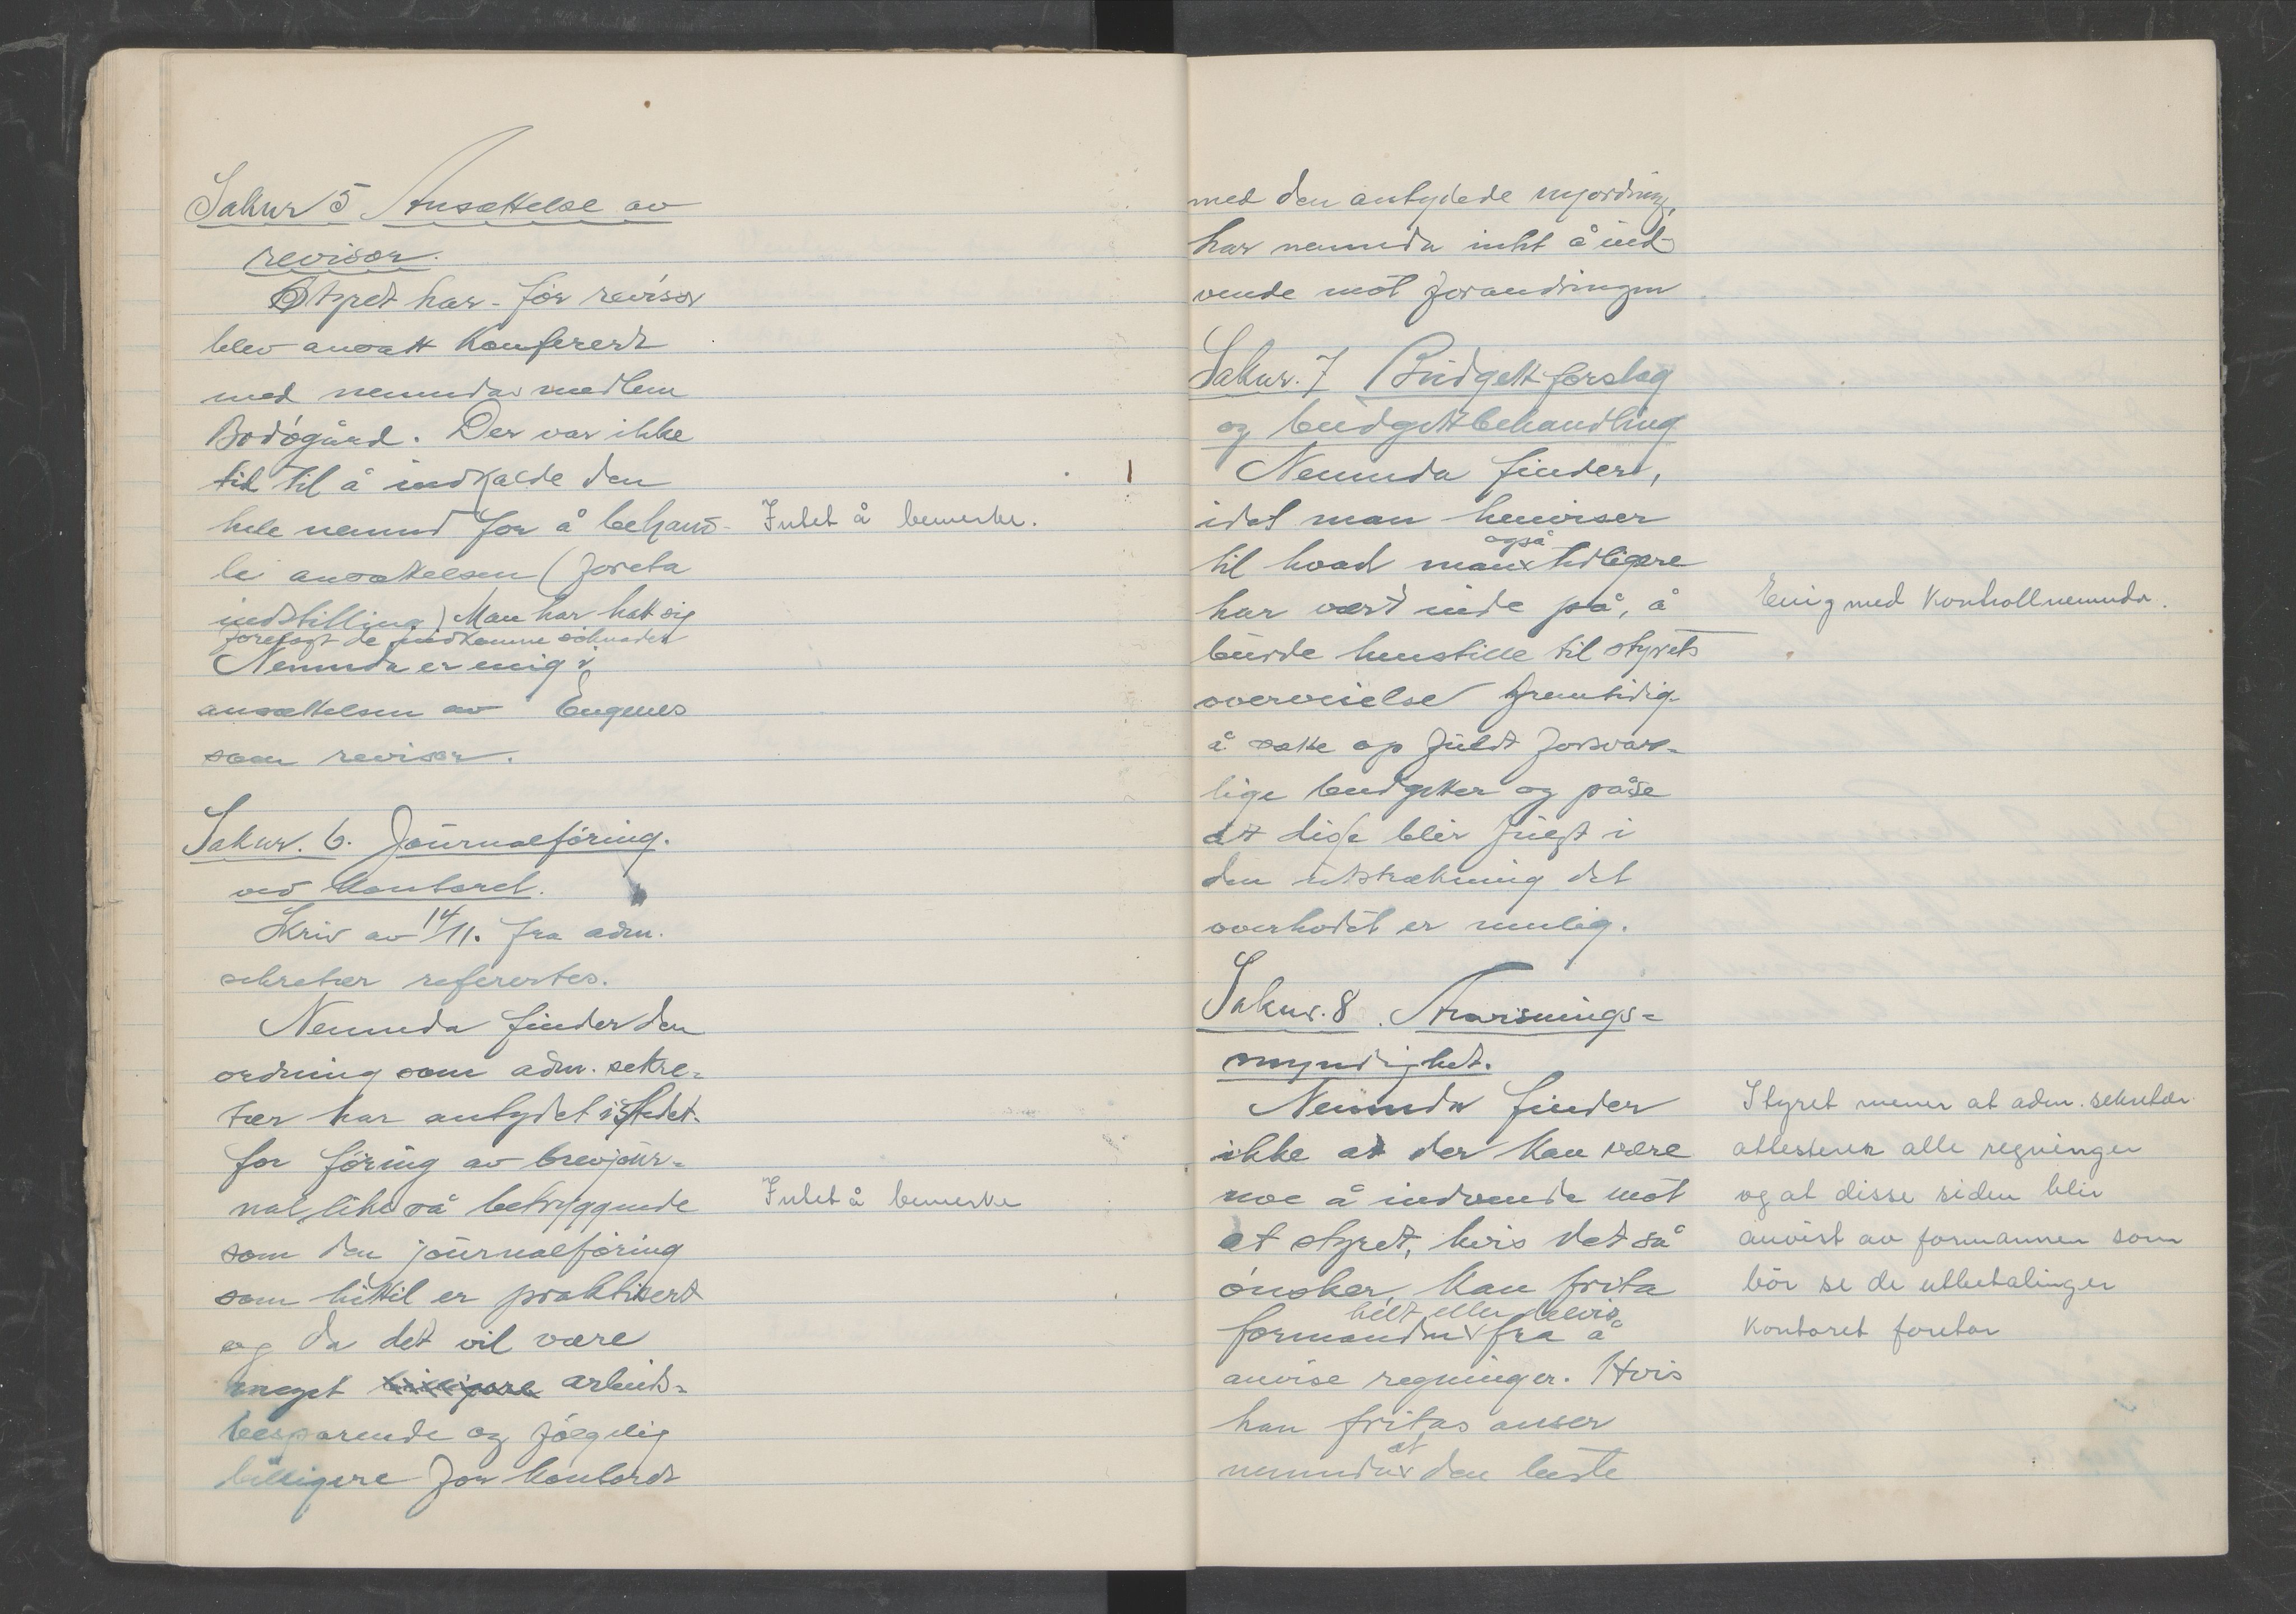 Saknr 5 Ansættelse av
revisor.
Styret har - før revisor
blev ansatt konferert
med nemndas medlem
Bodøgård. Der var ikke
tid til å indkalde den
hele nemnd for å behand-
le ansættelsen (foreta
indstilling) Man har hatt sig
forelagt de indkomne søknader
Nemnda er enig i
ansættelsen av Engenes
som revisor.
Intet å bemerke.
Saknr. 6. Journalføring.
ved kontoret.
Skriv av 14/11. fra adm.
sekretær refertes.
Nemnda finder den
ordning som adm. sekre-
tær har antydet istedet-
for føring av brevjour-
nal like så betryggende
som den journalføring
som hittil er praktisert
og da det vil være
meget billigere arbeids-
besparende og følgelig
billigere for kontoret
Intet å bemerke
med den antydede nyordning,
har nemnda intet å ind-
vende mot forandringen
Saknr. 7 Budgett forslag
og budgettbehandling
Nemnda finder,
idet man henviser
til hvad man også tidligere
har vært inde på, å
burde henstille til styrets
overveielse fremtidig
å sætte op fuldt forsvar-
lige budgetter og påse
at disse blir fulgt i
den utstrækning det
overhodet er mulig.
Enig med kontrollnemnda.
Saknr. 8. Anvisnings-
myndighet.
Nemnda finder
ikke at der kan være
noe å indvende mot
at styret, hvis det så
ønsker, kan frita
formanden helt eller delvis fra å
anvise regninger. Hvis
han fritas anser
nemnda at den beste
Styret mener at adm. sekretær
attesterer alle regninger
og at disse siden blir
anvist av formannen som
bør se de utbetalinger
kontoret foretar